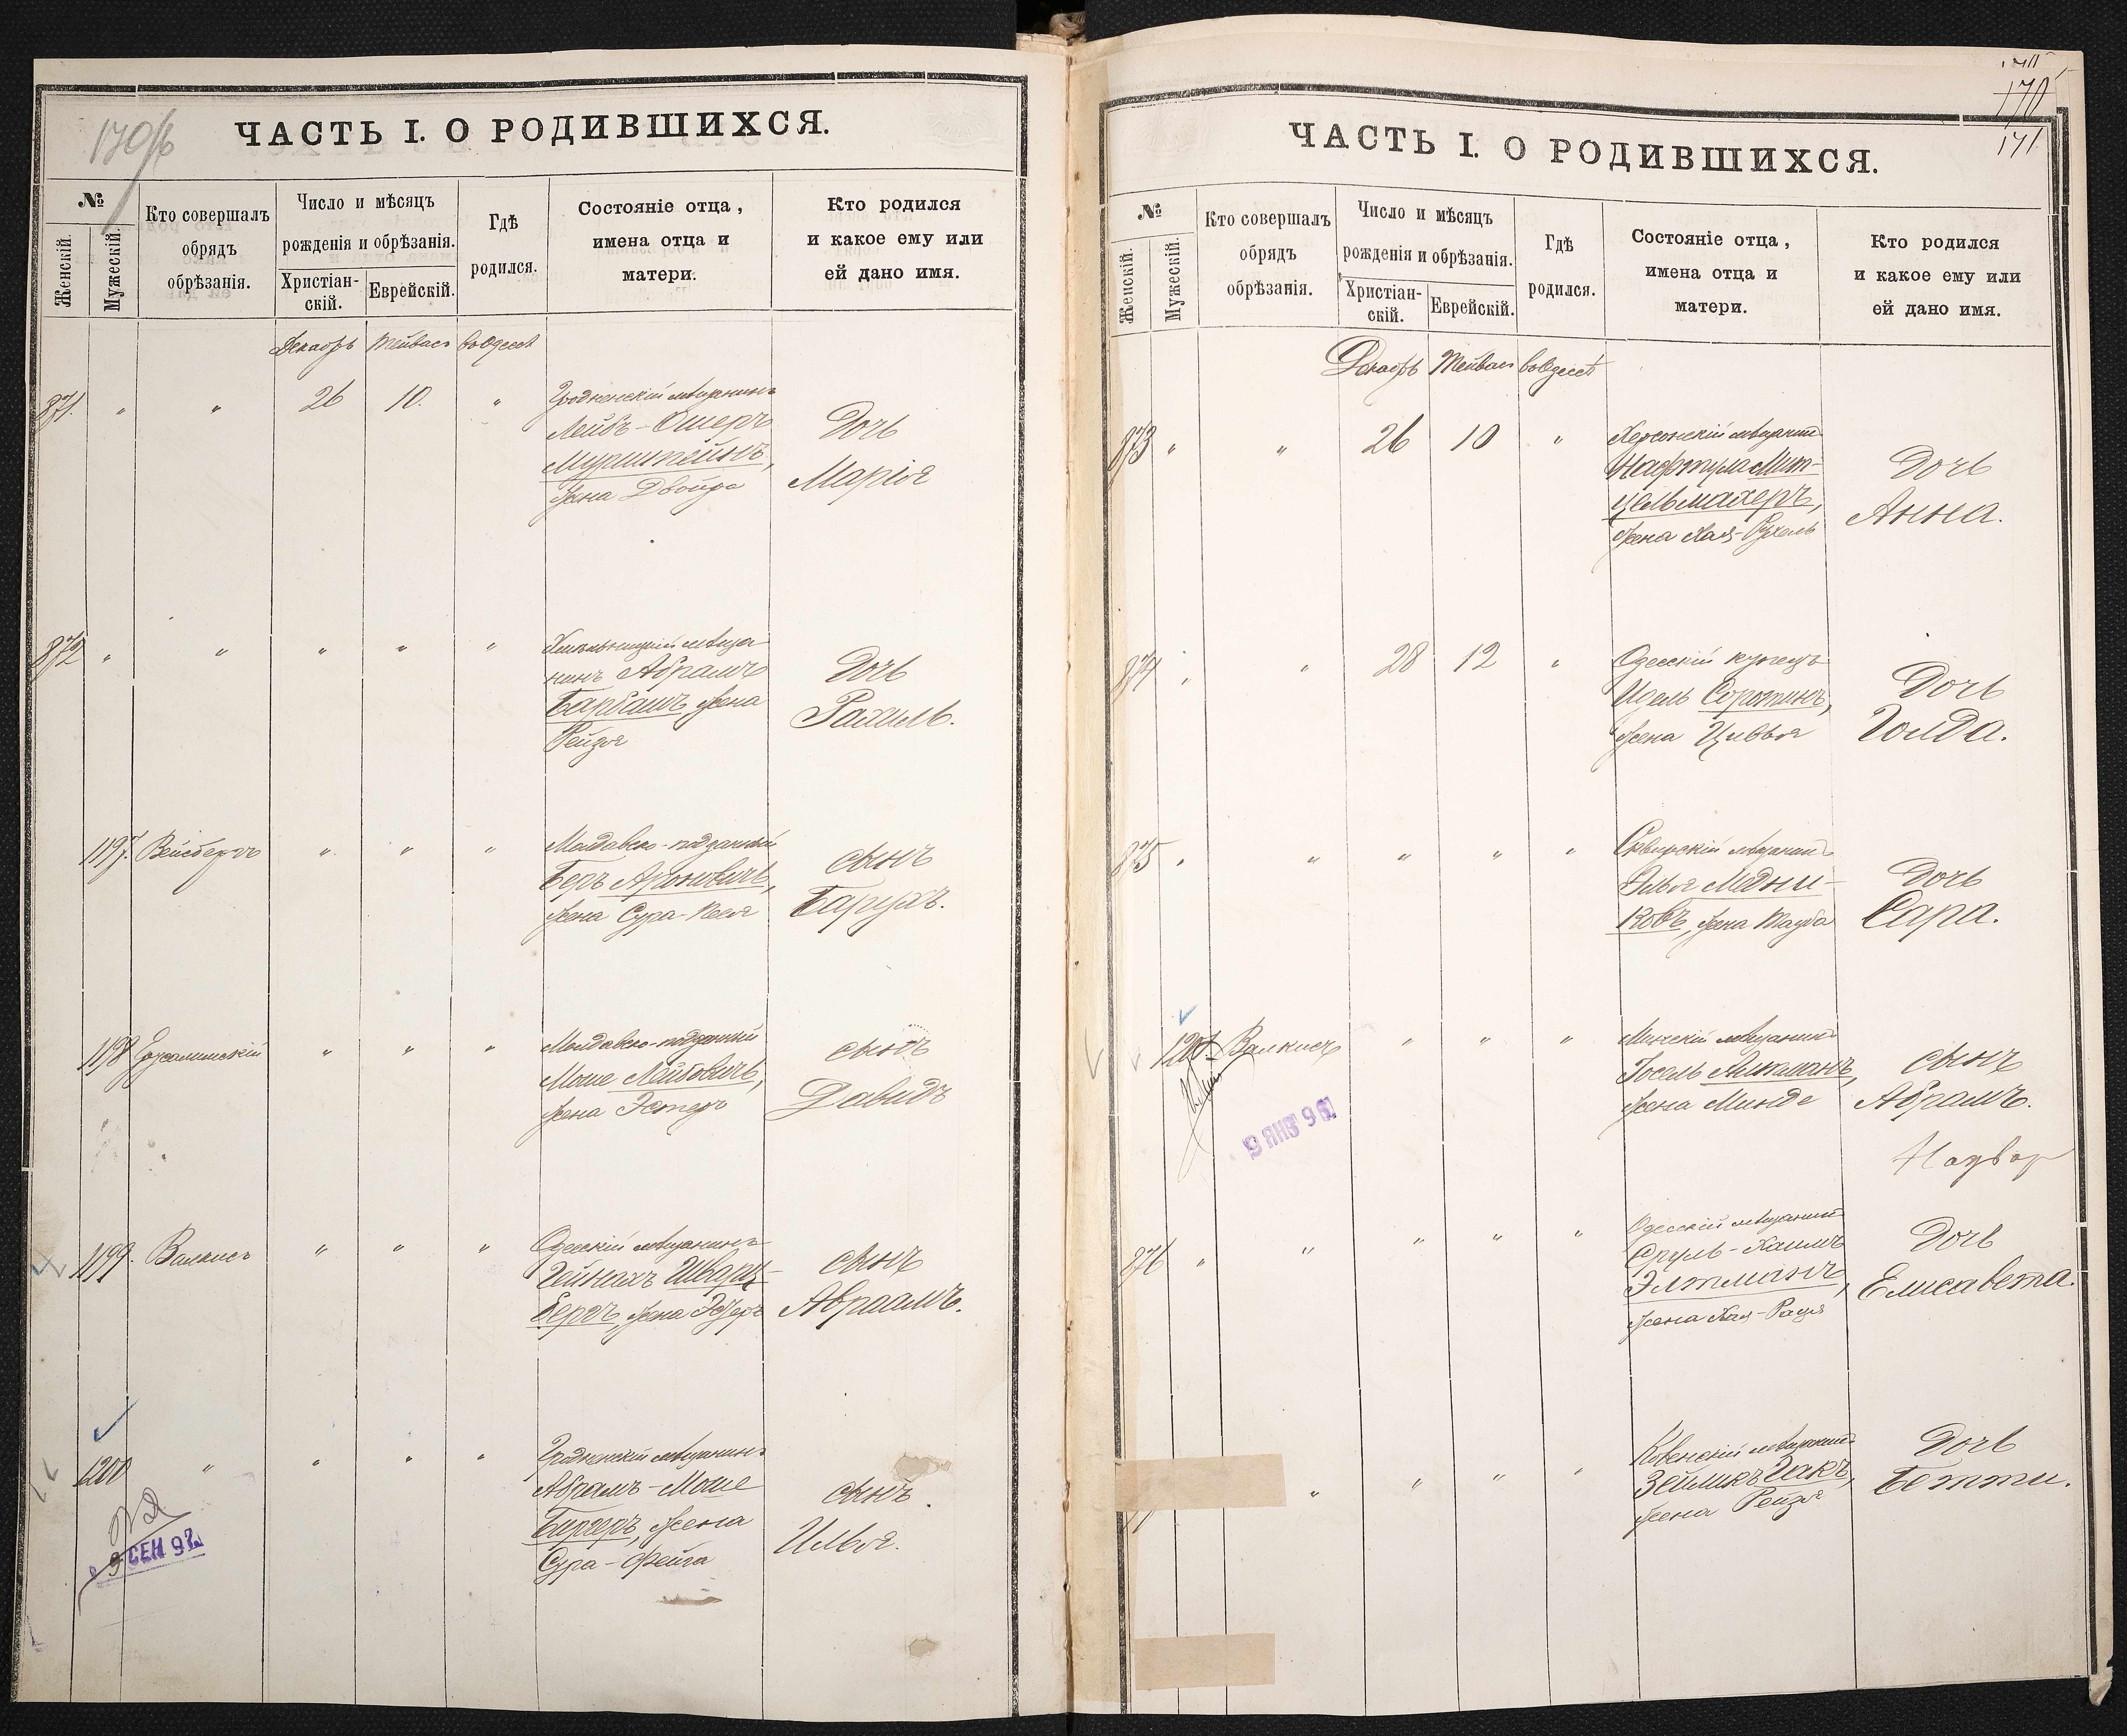 170/б
ЧАСТЬ I. О РОДИВШИХСЯ.
№
Женскій.
Мужескій.
Кто совершалъ
обрядъ
обрѣзанія.
Число и мѣсяцъ
рожденія и обрѣзанія.
Христіан-
скій.
Еврейскій.
Гдѣ
родился.
Состояніе отца,
имена отца и
матери.
Кто родился
и какое ему или
ей дано имя.
Декабрь Тейвасъ въ Одессѣ
871. " " 26 10. "
Гродненскій мѣщанинъ
Лейбъ-Ошеръ
Мурштейнъ,
жена Двойра
Дочь
Марія
872 " " " " "
мѣща-
нинъ Абрамъ
Барбашъ, жена
Рейзя
Дочь
Рахиль.
1197. Вейсбергъ " " "
Молдавско-подданный
Беръ Ароновичъ,
жена Сура-Песя
сынъ
Барухъ.
1198 Ерусалимскій " " "
Молдавско-подданный
Моше Лейбовичъ,
жена Эстеръ
сынъ
Давидъ
1199. Валкисъ " " "
Одесскій мѣщанинъ
Гейнахъ Шварц-
бергъ, жена Эстеръ
сынъ
Авраамъ.
1200 " " " "
Гродненскій мѣщанинъ
Абрамъ-Моше
Биргеръ, жена
Сура-Фейга
сынъ.
Илья.
9 СЕН 92
170
171
ЧАСТЬ I. О РОДИВШИХСЯ.
№
Женскій.
Мужескій.
Кто совершалъ
обрядъ
обрѣзанія.
Число и мѣсяцъ
рожденія и обрѣзанія.
Христіан-
скій.
Еврейскій.
Гдѣ
родился.
Состояніе отца,
имена отца и
матери.
Кто родился
и какое ему или
ей дано имя.
Декабрь Тейвасъ въ Одессѣ
873 " " 26 10 "
Херсонскій мѣщанинъ
Нафтула Мит-
цельмахеръ,
жена Хая-Рухель
Дочь
Анна.
874 " " 28 12 "
Одесскій купецъ
Сорокинъ,
жена Цивья
Дочь
Голда.
875 " " " " "
Сквирскій мѣщанинъ
Элья Медни-
ковъ, жена Тауба
Дочь
Сара.
1201 Валкисъ " " "
Минскій мѣщанинъ
Іосель Аикманъ,
жена Минде
сынъ
Абрамъ.
9 ЯНВ 96
876 " " " " "
Одесскій мѣщанинъ
Сруль-Хаимъ
Элтманъ,
жена Хая-Рася
Дочь
Елисавета.
" " " "
Ковенскій мѣщанинъ
Зеликъ Гакъ,
жена Рейзя
Дочь
Бетти.